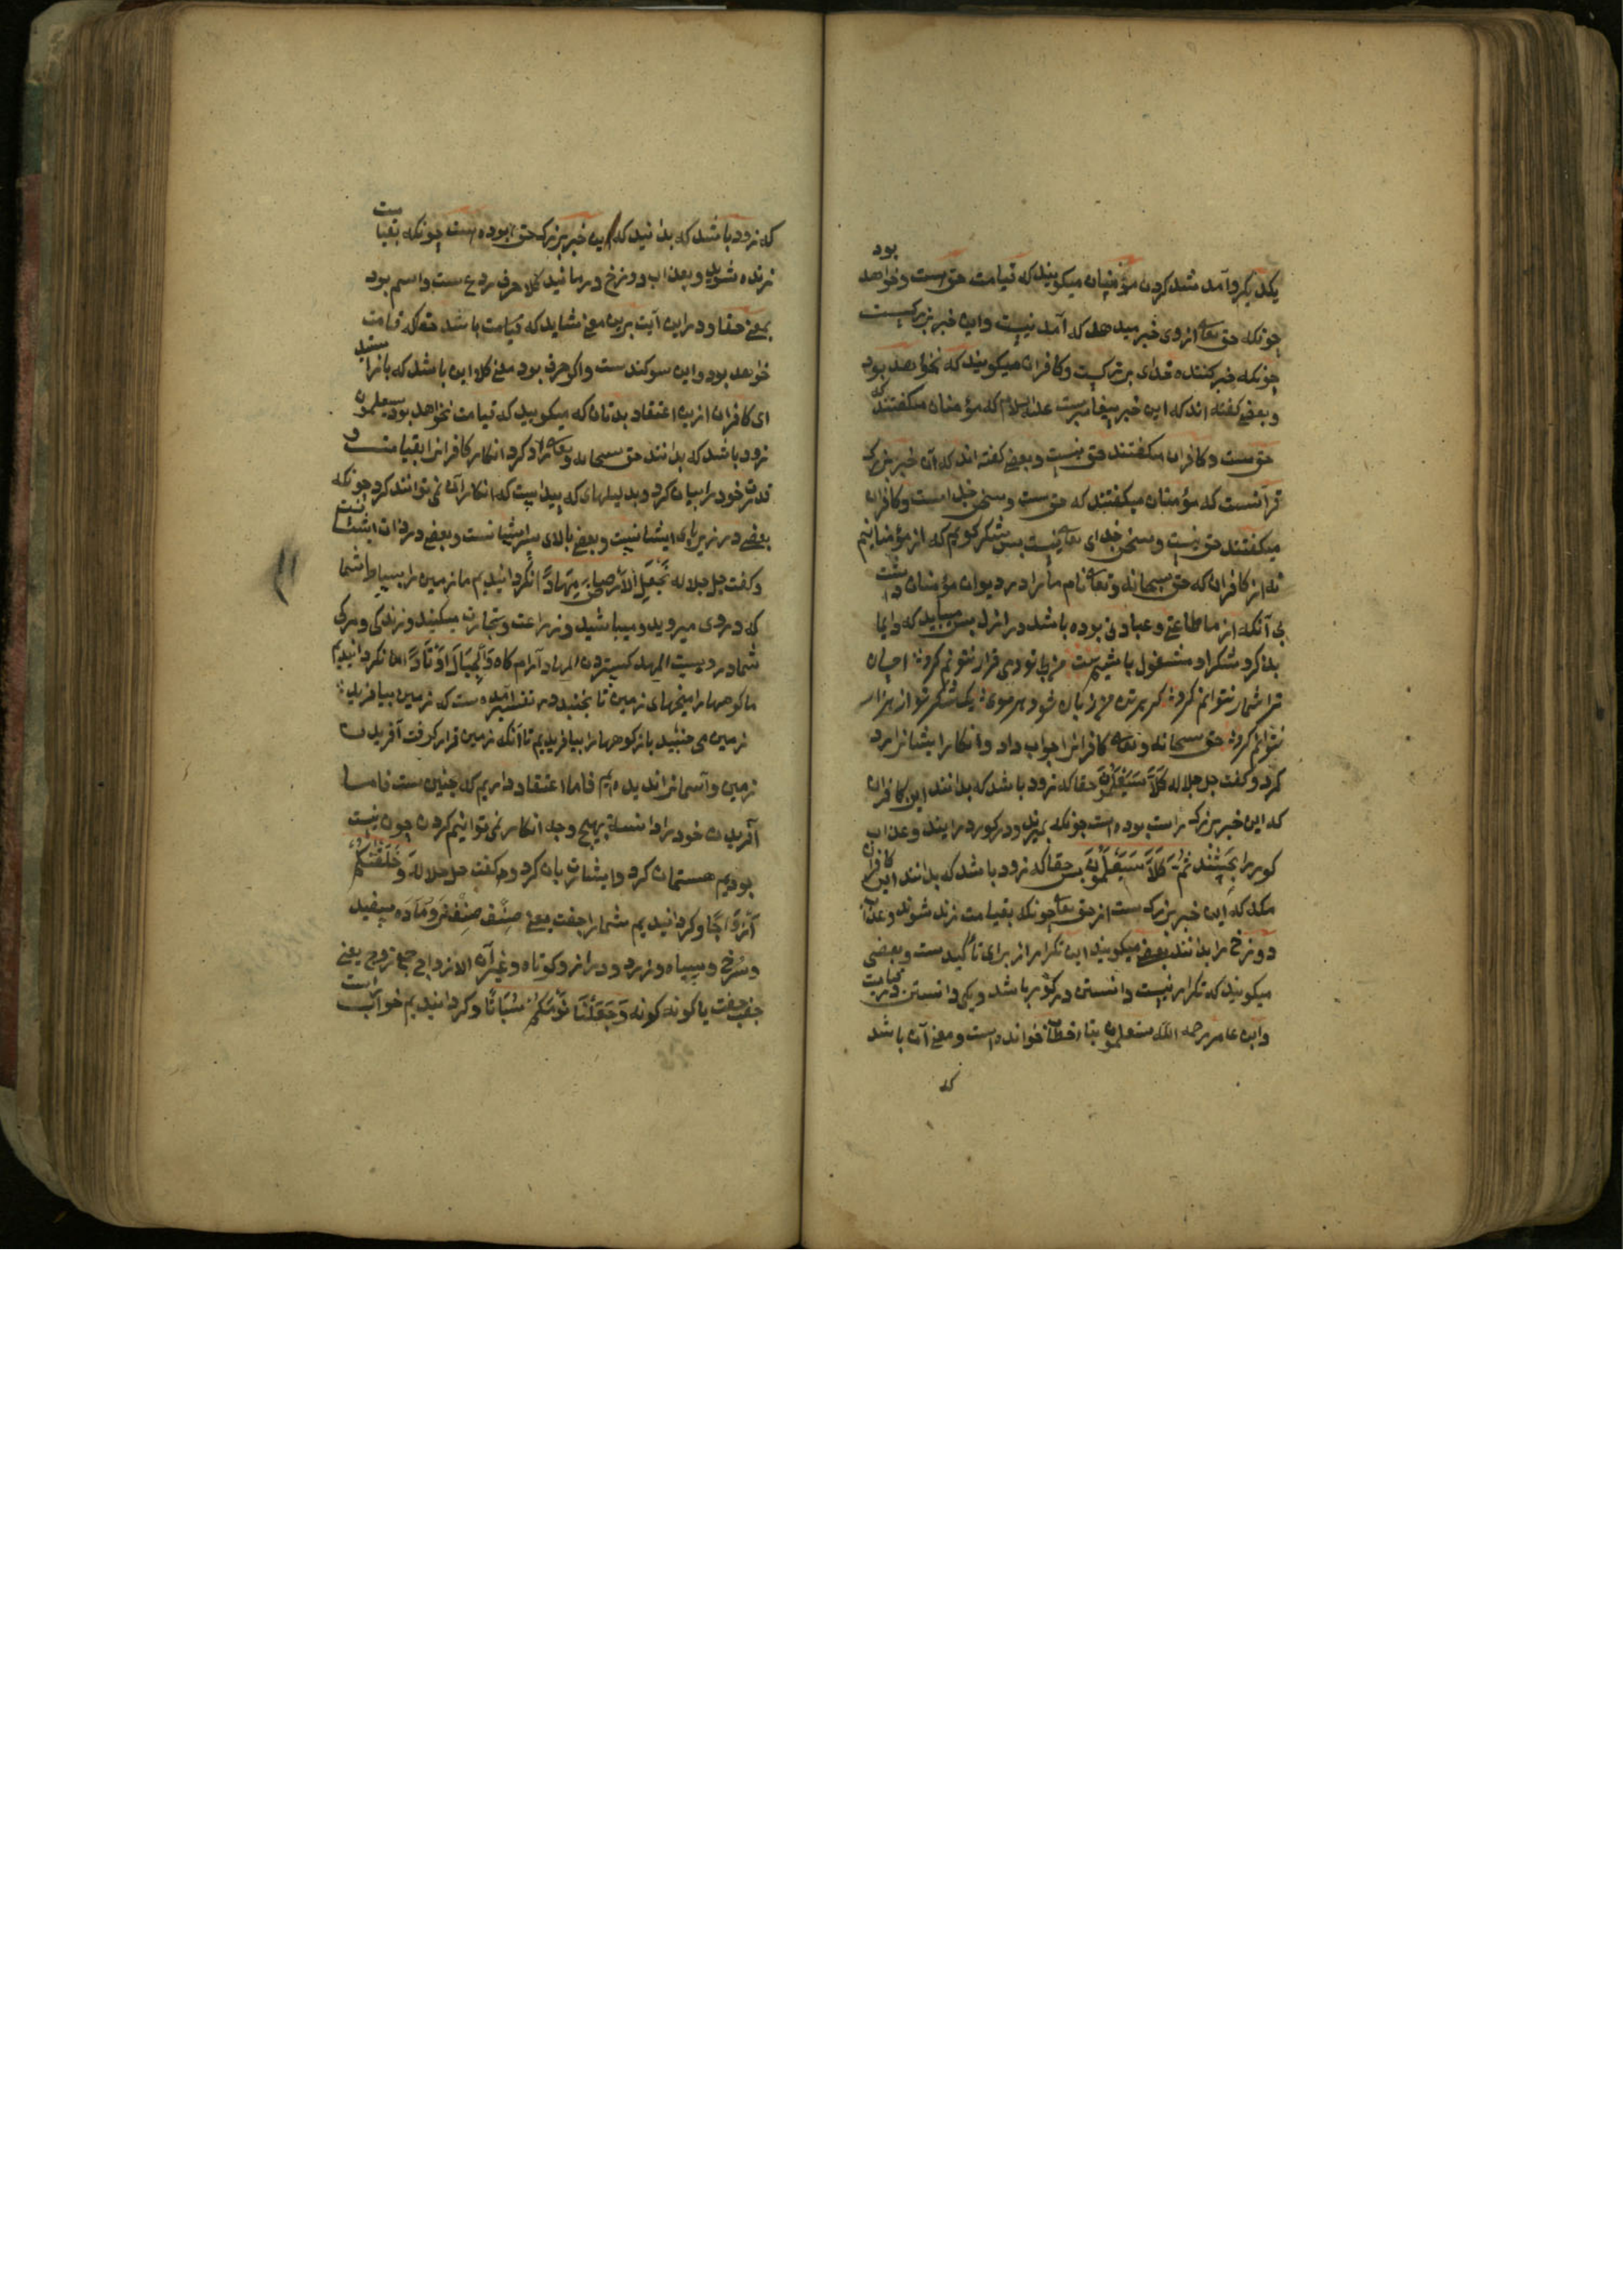 یکدیکر وآمد شد کردن مؤمنیان میکویند که قیامت حق است وخواهد بود
چونکه حق تعالی از وی خبر میدهد که آمد نیست واین خبر بزرکیست
چونکه خبر کننده خدای بزرکیست وکافران میکویند که نخواهد بود
وبعضی کفته اند که این خبر پیغامبرست علیه السلام که مؤمنان میکفتند که
حق ست وکافران میکفتند حق نیست وبعضی کفته اند که آن خبر بزرک
قرآنست که مؤمنان میکفتند که حق ست وسخن خدا است وکافران
میکفتند حق نیست وسخن خدای تعالی نیست بس شکر کویم که از مؤمنانیم
نه از کافران که حق سبحانه وتعالی نام مانرا در دیوان مؤمنان داشت
بی آنکه از ما طاعتی وعبادتی بوده باشد در ازل بس میباید که دایما
بذکر وشکر او مشغول باشیم بیت من بی تو دمی قرار نتوانم کرد احسان
ترا شمار نتوانم کرد کر بر تن من زبان شود هر موی یک شکر تو از هزار
نتوانم کرد حق سبحانه وتعالی کافرانرا جواب داد وانکار ایشانرا رد
کرد وکفت جل جلاله کَلَّا سَیَعْلَمُونَ حقا که زود باشد که بدانند این کافران
که این خبر بزرک راست بوده است چونکه بمیرند ودر کور درایند وعذاب
کور را بچشند ثُمَّ کَلَّا سَیَعْلَمُونَ بس حقا که زود باشد که بدانند این کافران
که این خبر بزرک ست از حق تعالی چونکه بقیامت زنده شوند وعذاب
دوزخ را بدانند بعضی میکویند این تکرار از برای تأکیدست وبعضی
میکویند که تکرار نیست دانستن در کور باشد ویکی دانستن در قیامت
وابن عامر رحمه الله ستعلمون بتاء خطاب خوانده است ومعنی آن باشد
که
که زود باشد که بدانید که این خبر بزرک حق بوده است چونکه بقیامت
زنده شوید وبعذاب دوزخ درمانید کلا حرف ردع ست واسم بود
بمعنی حقا ودر این آیت برین معنی شاید که قیامت باشد حقا که قیامت
خواهد بود واین سوکند ست واکر حرف بود معنی کلا این باشد که بازایستید
ای کافران ازین اعتقاد بدتان که میکویید که قیامت نخواهد بود سیعلمون
زود باشد که بدانند حق سبحانه وتعالی رد کرد انکار کافرانرا بقیامت و
قدرت خود را بیان کرد وبدلیلهای که پیداست که انکار آن نمی توانند کرد چونکه
بعضی در زیر پای ایشانست وبعضی بالای سر ایشانست وبعضی در ذات ایشانست
وکفت جل جلاله نَجْعَلِ الْاَرْضَ مِهَادًا انکردانیدیم ما زمین را بساط شما
که در وی میروید ومیباشید وزراعت وتجارت میکنید وزندکی ومرکی
شما در ویست المهد کسترن المهاد آرام کاه وَالْجِبَالَ اَوْتَادًا انکردانیدیم
ما کوهها را میخهای زمین تا بجنبد در تفسیر آمده ست که زمین بیافرید
زمین می جنبید باز کوهها را بیافریدیم تا آنکه زمین قرار کرفت آفریدن
زمین وآسمانرا ندیده ایم فاما اعتقاد داریم که چنین ست فاما
آفریدن خود را دانسته بهیچ وجه انکار نمی توانیم کردن چون نیست
بودیم هستمان کرد وایشانرا بیان کرد وکفت جل جلاله وَخَلَقْنَاکُمْ
اَزْوَاجًا وکردانیدیم شمارا جفت یعنی صنف صنف نر وماده سپید
وسرخ وسیاه وزرد ودراز وکوتاه وغیر آن الازواج جمع زوج یعنی
جفت جفت یا کونه کونه وَجَعَلْنَا نَوْمَکُمْ سُبَاتًا وکردانیدیم خواب